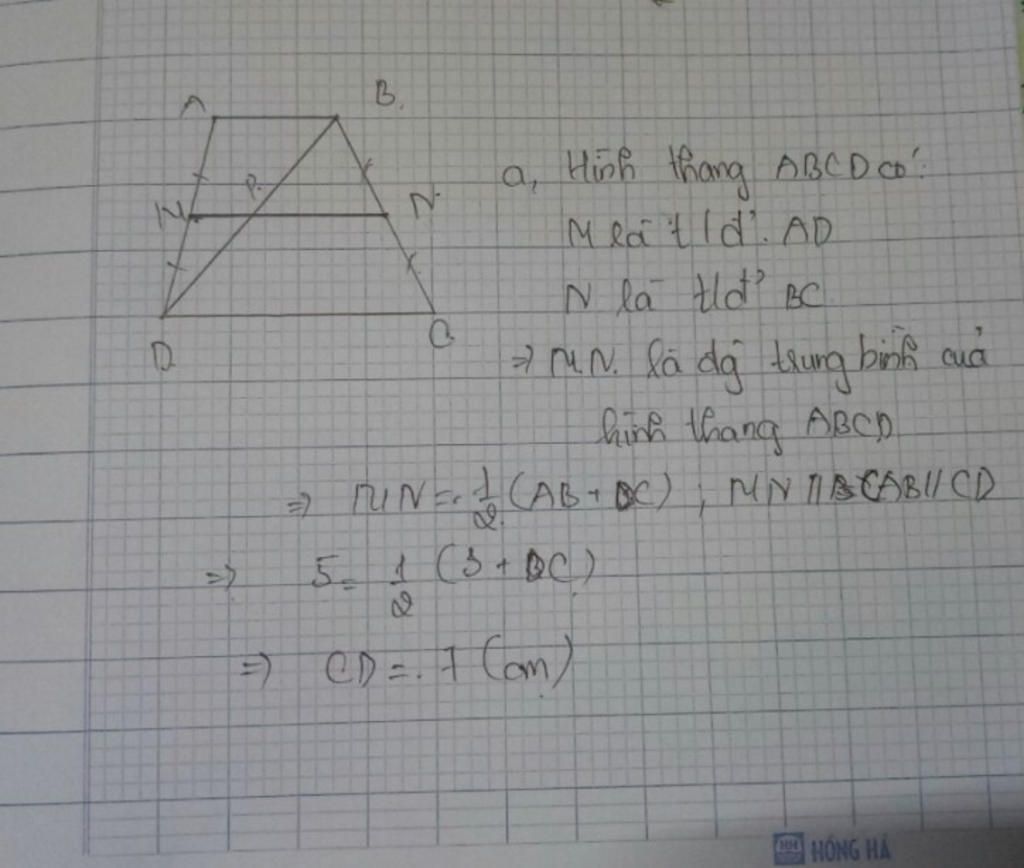 A B.
a, Hình thang ABCD có:
P.
M N.
M là t/đ'. AD
N là t/đ' BC
D C
=> MN. là đg trung bình cuả
hình thang ABCD
=> MN = 1/2 (AB + DC) ; MN // AB // CD
=> 5 = 1/2 (3 + DC)
=> CD = 7 (cm)
HH HỒNG HÀ